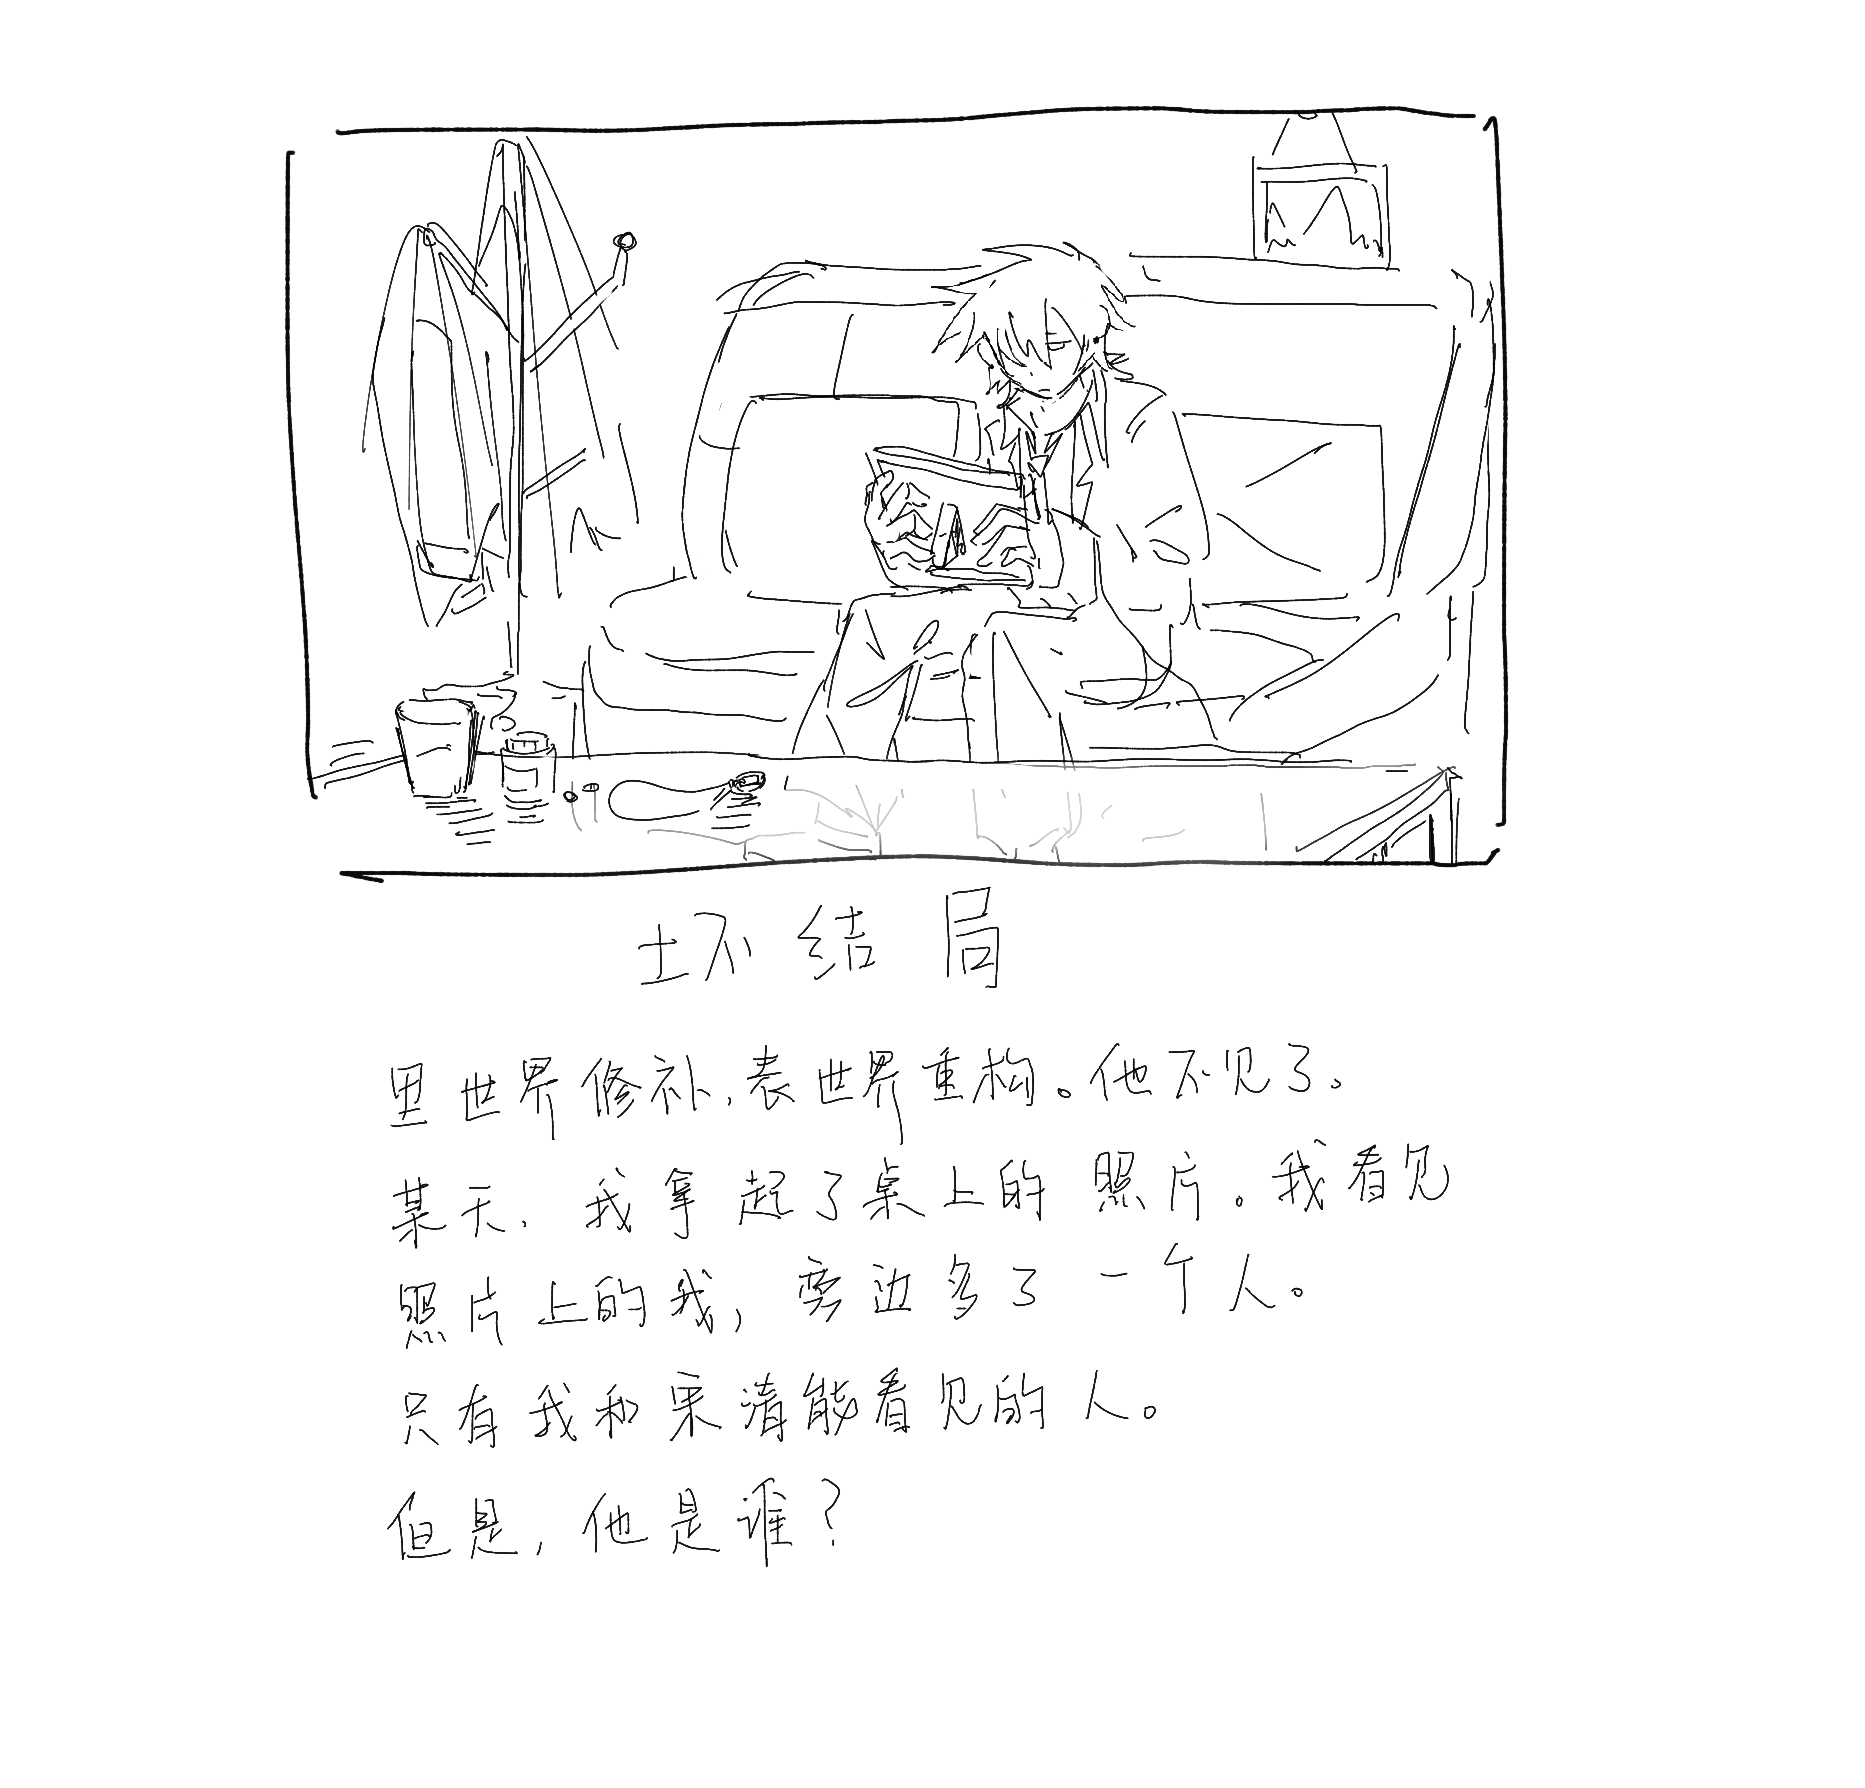 坏结局
里世界修补,表世界重构。他不见了。
某天,我拿起了桌上的照片。我看见
照片上的我,旁边多了一个人。
只有我和宋清能看见的人。
但是,他是谁?